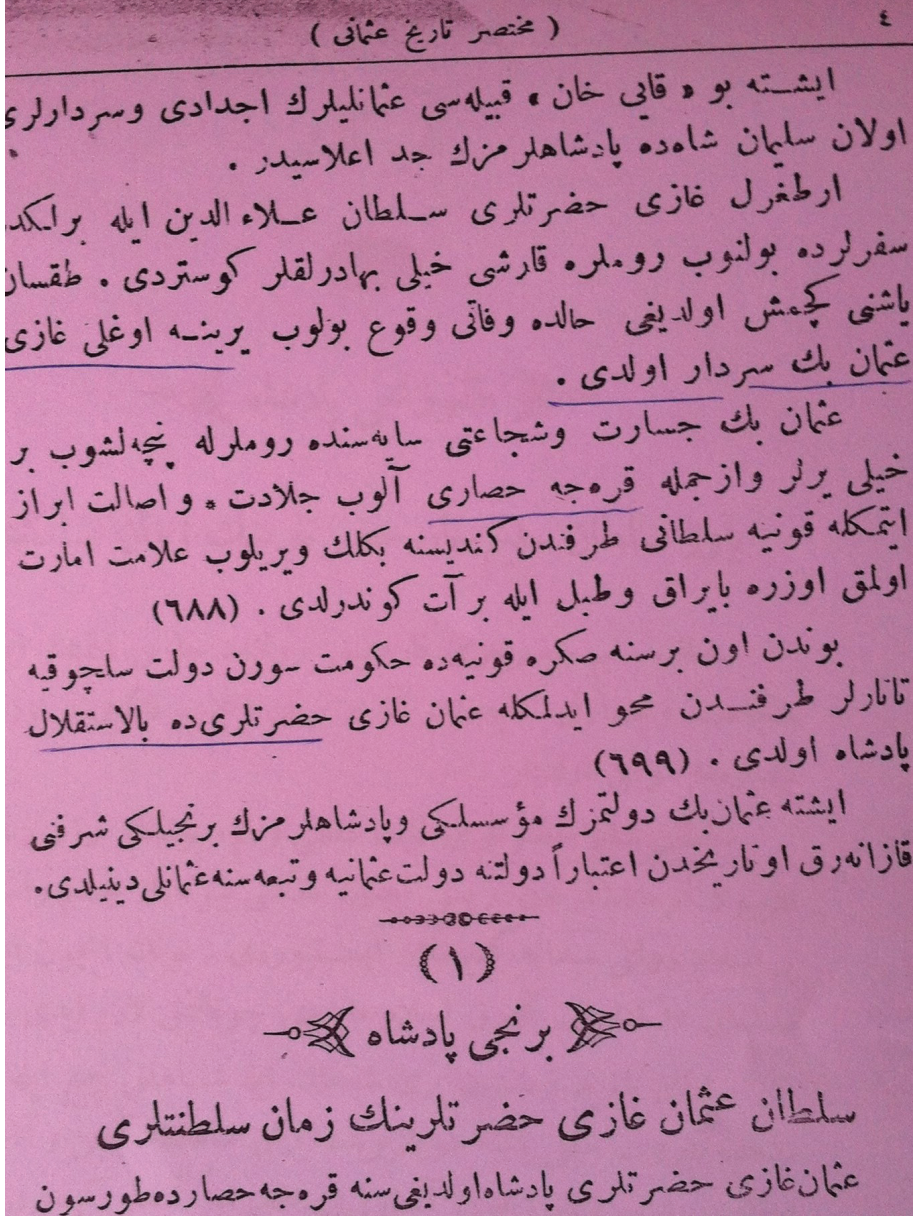 ٤
( مختصر تاريخ عثمانى )
ايشته بو « قايى خان » قبيله‌سى عثمانليلرك اجدادى وسردارلرى
اولان سليمان شاه‌ده پادشاهلرمزك جد اعلاسيدر .
ارطغرل غازى حضرتلرى سلطان علاء الدين ايله برلكده
سفرلرده بولنوب روملره قارشى خيلى بهادرلقلر كوستردى . طقسان
ياشنى كچمش اولديغى حالده وفاتى وقوع بولوب يرينه اوغلى غازى
عثمان بك سردار اولدى .
عثمان بك جسارت وشجاعتى سايه‌سنده روملرله پنچه‌لشوب بر
خيلى يرلر وازجمله قره‌جه حصارى آلوب جلادت و اصالت ابراز
ايتمكله قونيه سلطانى طرفندن كنديسنه بكلك ويريلوب علامت امارت
اولمق اوزره بايراق وطبل ايله بر آت كوندرلدى . (٦٨٨)
بوندن اون برسنه صكره قونيه‌ده حكومت سورن دولت سلجوقيه
تاتارلر طرفندن محو ايدلمكله عثمان غازى حضرتلرى‌ده بالاستقلال
پادشاه اولدى . (٦٩٩)
ايشته عثمان‌بك دولتمزك مؤسسلكى وپادشاهلرمزك برنجيلكى شرفنى
قازانه‌رق اوتاريخدن اعتباراً دولتنه دولت عثمانيه وتبعه‌سنه عثمانلى دينيلدى.
(١)
برنجى پادشاه
سلطان عثمان غازى حضرتلرينك زمان سلطنتلرى
عثمان‌غازى حضرتلرى پادشاه‌اولديغى‌سنه قره‌جه‌حصارده‌طورسون